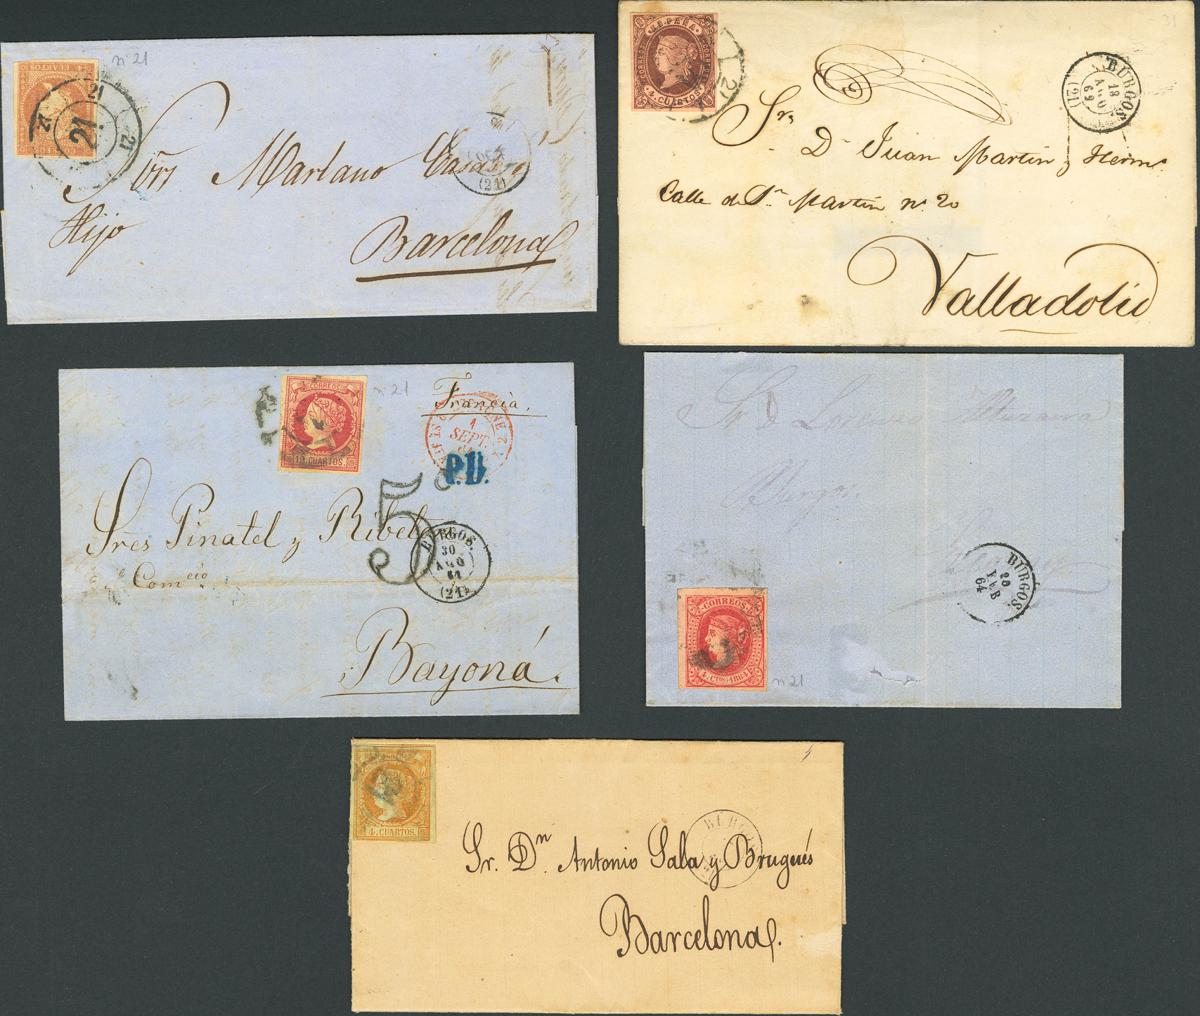 nº 21
21
21
21
21
Mariano Casas é
Hijo
Barcelona
(21)
31
CORREOS
4 CUARTOS
21
BURGOS
18
AGO
63
(21)
Sr. D. Juan Martin y Herm.
Calle de Sn. Martin nº 20
Valladolid
CORREOS
12 CUARTOS.
nº 21
Francia
1
SEPT.
P.D.
5
BURGOS.
30
AGO
61
(21)
Sres Pinatel y
Comcio
Bayona.
Sr. D.
Burgos.
BURGOS.
FEB
64
CORREOS
4. CTOS. 1864
nº 21
4. CUARTOS.
BURGOS
Sr. Dn. Antonio Sala y Brugués
Barcelona.